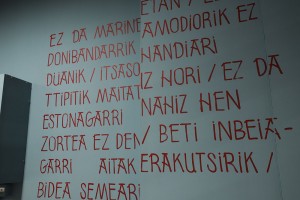 ETAN / E
EZ DA MARINE AMODIORIK EZ
DONIBANDARRIK HANDIARI
DUANIK / ITSASO IZ HORI / EZ DA
TTIPITIK MAITAT NAHIZ HEN
ESTONAGARRI / BETI INBEIA-
ZORTEA EZ DEN ERAKUTSIRIK /
GARRI AITAK
BIDEA SEMEARI